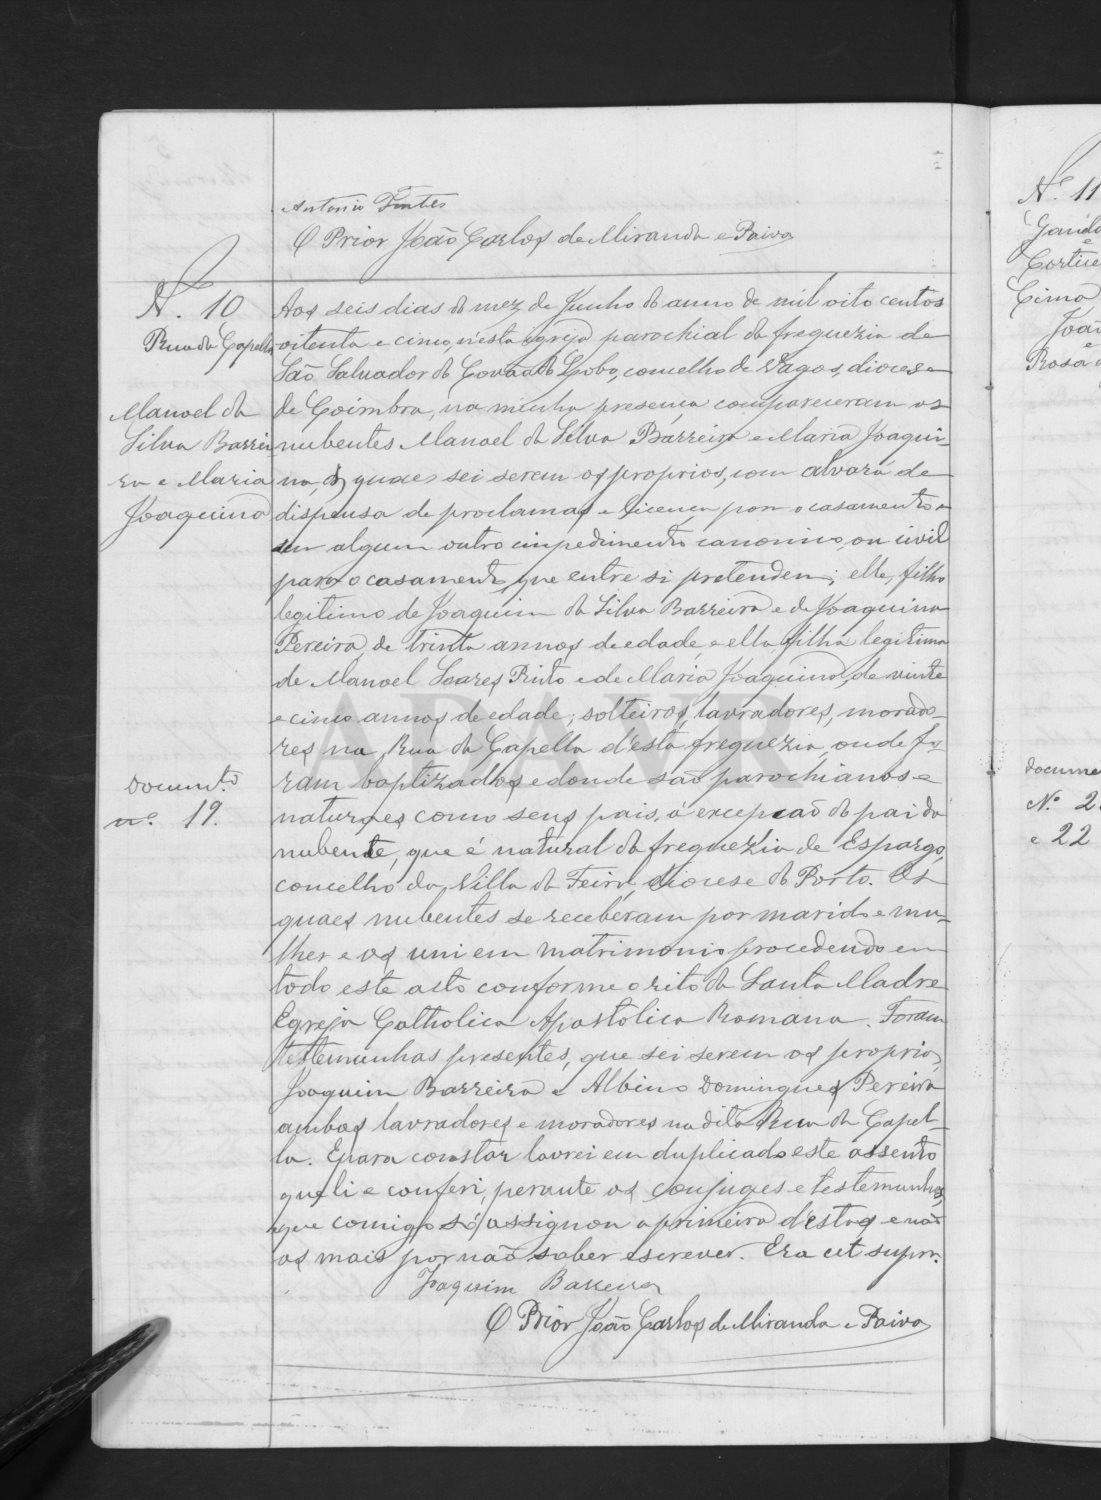 Antonio Fontes
O Prior João Carlos de Miranda e Paiva
Nº. 10
Rua da Capella
Manoel da
Silva Barrei
ra e Maria
Joaquina
Aos seis dias do mez de Junho do anno de mil oito centos
oitenta e cinco, n'esta egreja parochial da freguezia de
São Salvador do Covão do Lobo, concelho de Vagos, diocese
de Coimbra, na minha presença compareceram os
nubentes Manoel da Silva Barreira e Maria Joaqui-
na, os quaes sei serem os proprios, com alvará de
dispensa de proclamas e licença para o casamento e
sem algum outro impedimento canonico, ou civil
para o casamento que entre si pretendem; elle, filho
legitimo de Joaquim da Silva Barreira e de Joaquina
Pereira, de trinta annos de edade e ella filha legitima
de Manoel Soares Pinto e de Maria Joaquina, de vinte
e cinco annos de edade; solteiros, lavradores, morado-
res na Rua da Capella d'esta freguezia, onde fo-
ram baptizados e donde são parochianos e
naturaes como seus pais, á excepcaõ do pai da
nubente, que é natural da freguezia de Espargo,
concelho da Villa da Feira, diocese do Porto. Os
quaes nubentes se receberam por marido e mu-
lher e os uni em matrimonio procedendo em
todo este acto conforme o rito da Santa Madre
Egreja Catholica Apostolica Romana. Foram
testemunhas presentes, que sei serem os proprios,
Joaquim Barreira e Albino Domingues Pereira
ambos lavradores e moradores na dita Rua da Capel-
la. E para constar lavrei em duplicado este assento
que li e conferi, perante os conjuges e testemunhas,
que comigo só assignou a primeira d'estas e não
os mais por não saber escrever. Era ut supra.
Joaquim Barreira
O Prior João Carlos de Miranda e Paiva
Docum.to
nº. 19.
Nº 11
Cortice
Cima
João
e
Rosa
Docume
Nº. 2
e 22
APAVR